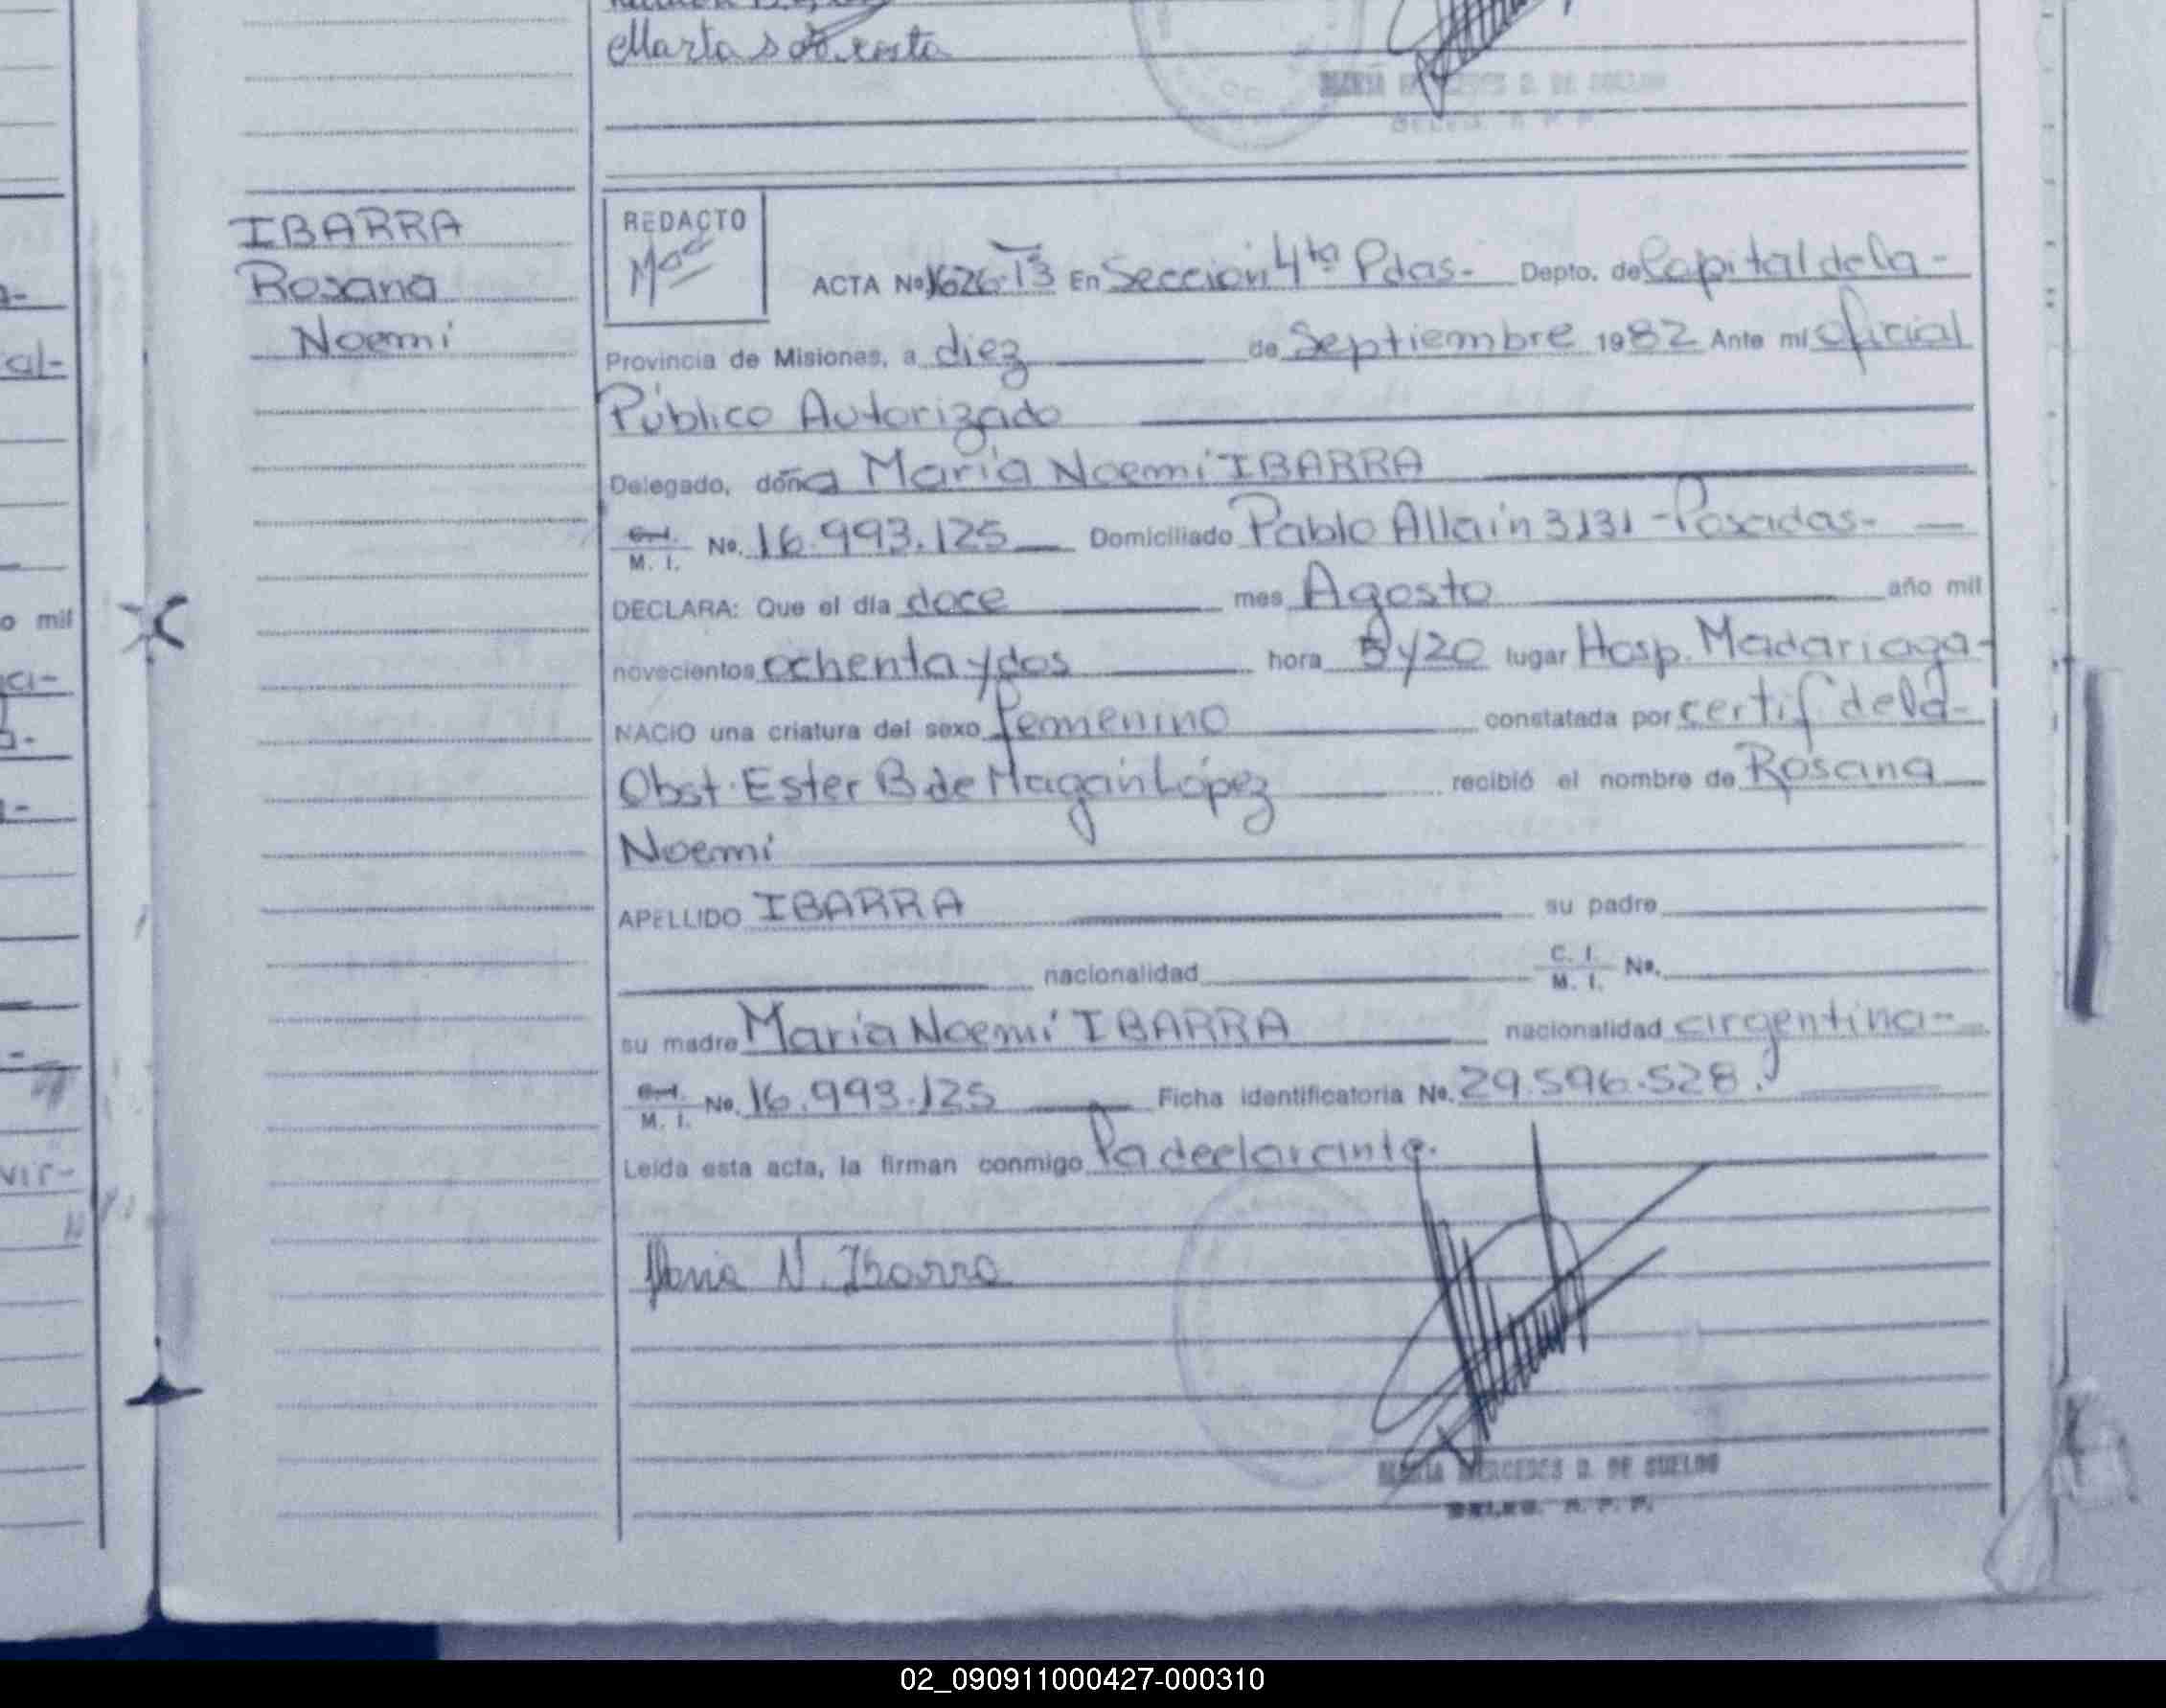 Marta
MARÍA MERCEDES D. DE SUELDO
DELEG. R. P. P.
IBARRA
Rosana
Noemí
REDACTO
ACTA No 1626-T3 En Sección 4ta Pdas.- Depto. de Capital de la-
Provincia de Misiones, a diez de Septiembre 1982 Ante mí Oficial
Público Autorizado
Delegado, doña María Noemí IBARRA
C. I. M. I. No. 16.993.125 Domiciliado Pablo Allaín 3131 -Posadas-
DECLARA: Que el día doce mes Agosto año mil
novecientos ochenta y dos hora 5 y 20 lugar Hosp. Madariaga-
NACIO una criatura del sexo femenino constatada por certif de la-
Obst. Ester B de Magaín López recibió el nombre de Rosana
Noemí
APELLIDO IBARRA su padre
nacionalidad C. I. M. I. No.
su madre María Noemí IBARRA nacionalidad argentina-
C. I. M. I. No. 16.993.125 Ficha identificatoria No. 29.596.528.
Leída esta acta, la firman conmigo la declarante.
Maria N. Ibarra
MARÍA MERCEDES D. DE SUELDO
DELEG. R. P. P.
al-
o mil
vir-
02_090911000427-000310